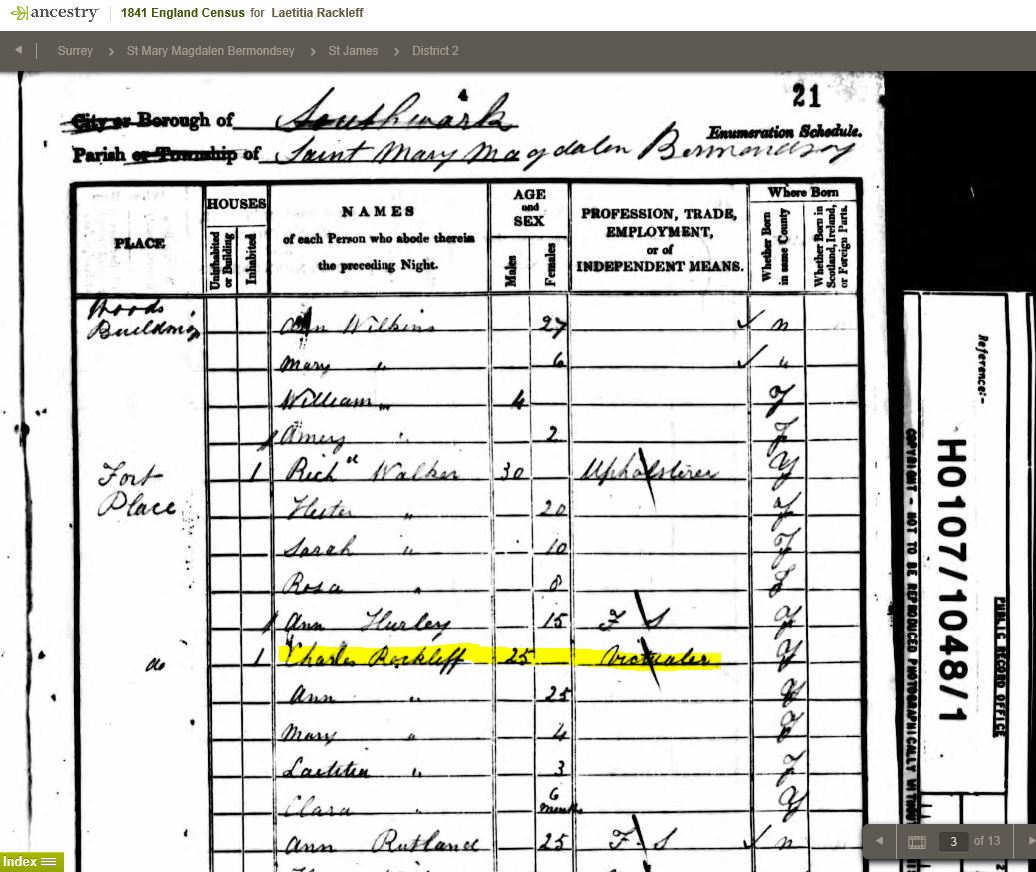 ancestry 1841 England Census for Laetitia Rackleff
Surrey > St Mary Magdalen Bermondsey > St James > District 2
4
21
City or Borough of Southwark
Enumeration Schedule.
Parish or Township of Saint Mary Magdalen Bermondsey
PLACE
HOUSES
Uninhabited or Building
Inhabited
NAMES
of each Person who abode therein
the preceding Night.
AGE
and
SEX
Males
Females
PROFESSION, TRADE,
EMPLOYMENT,
or of
INDEPENDENT MEANS.
Where Born
Whether Born in same County
Whether Born in Scotland, Ireland, or Foreign Parts.
Woods
Building
Ann Wilkins 27 n
Mary " 6 "
William " 4 Y
" 2 Y
Fort
Place
1 Rich^d Walker 30 Upholsterer Y
Hester " 20 Y
Sarah " 10 Y
Rosa " 8
Ann Hurley 15 F S Y
do 1 Charles Rockleff 25 Victualer Y
Ann " 25 Y
Mary " 4 Y
Laetitia " 3 Y
Clara " 6 months Y
Ann Rutland 25 F. S n
Reference:-
HO107/1048/1
PUBLIC RECORD OFFICE
COPYRIGHT - NOT TO BE REPRODUCED PHOTOGRAPHICALLY WITHOUT
Index
3 of 13